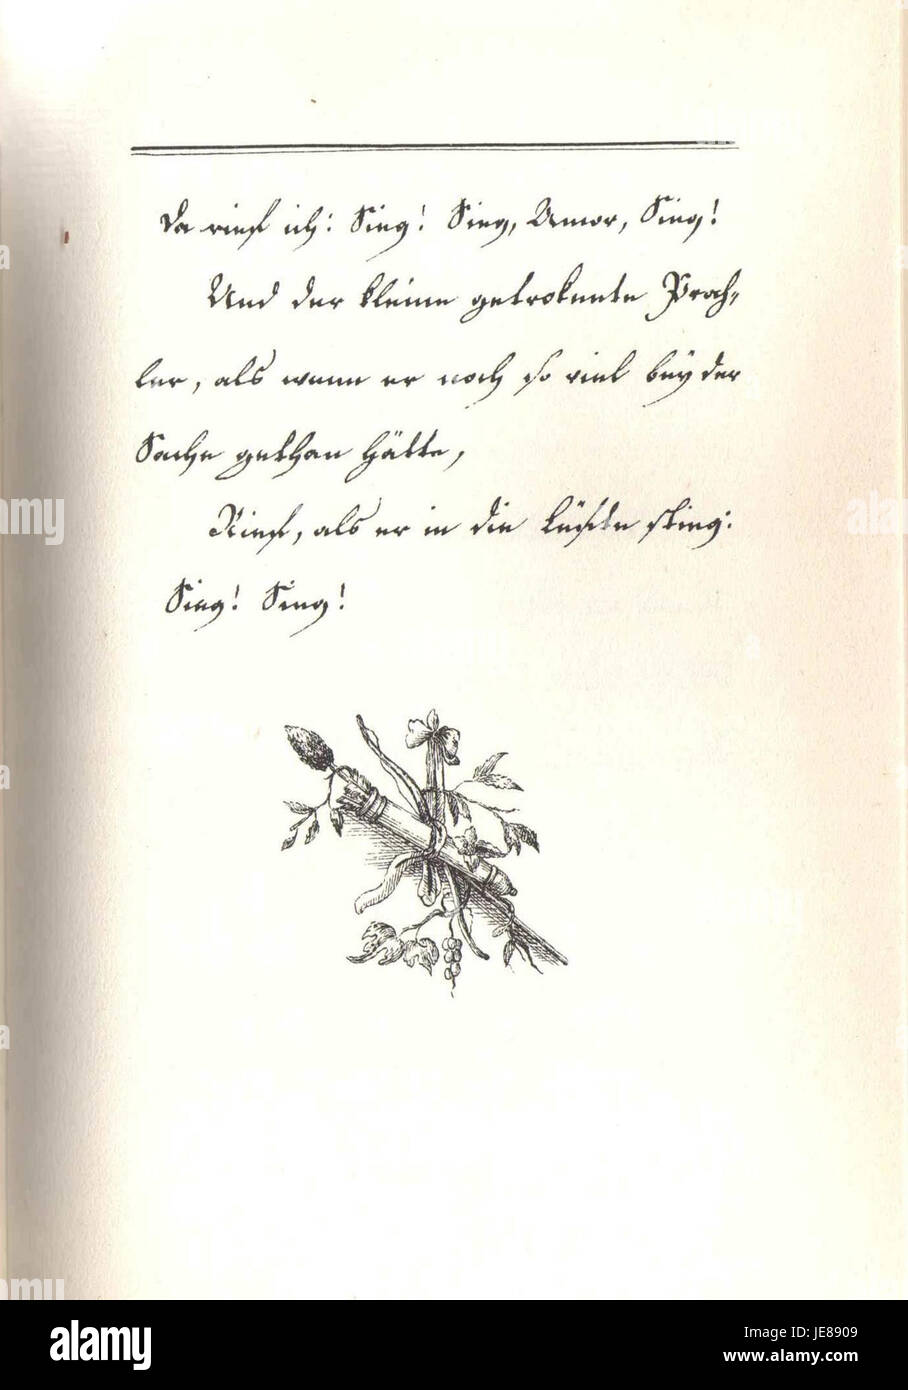 Da rief ich: Sieg! Sieg, Amor, Sieg!
Und der kleine getrokente Prah-
ler, als wenn er noch so viel bey der
Sache gethan hätte,
Rief, als er in die Lüfte stieg:
Sieg! Sieg!
alamy
alamy
alamy
alamy
Image ID: JE8909
www.alamy.com